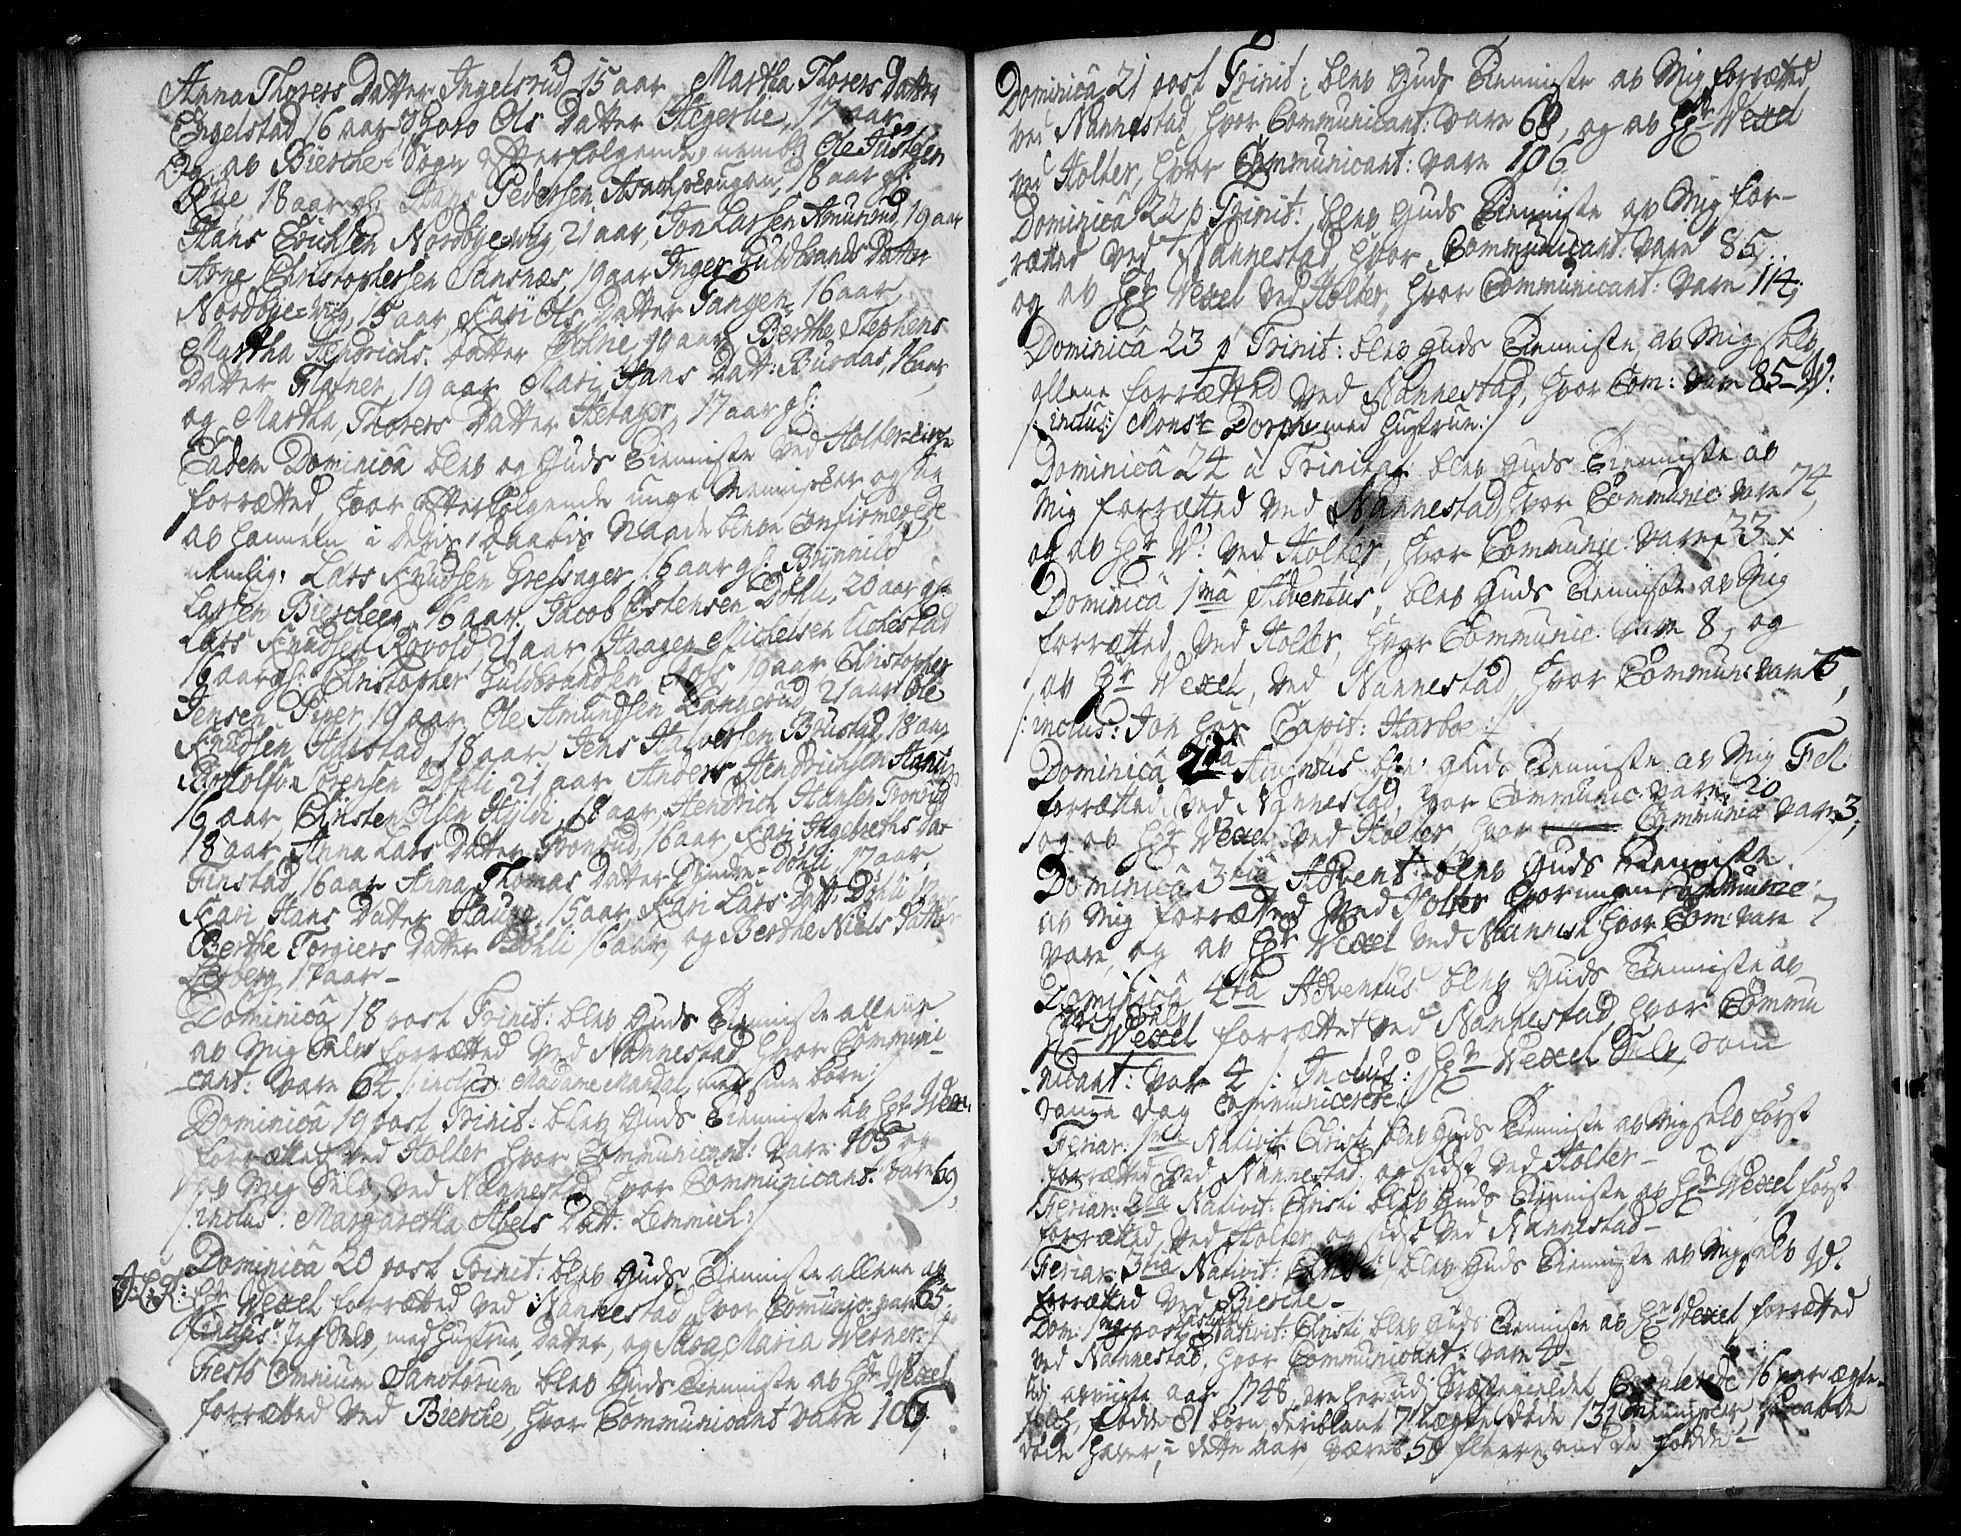 Anna Thorers Datter Ingelsrud 15 aar Martha Thorers Datter
Engelstad 16 aar Thoro Ols Datter Hegerlie, 17 aar
Og av Bierche Sogn efterfølgende, nemlig Ole Justsen
18 aar gl: Hans Pedersen 18 aar gl:
Hans Erichsen Nordbye 21 aar, Jon Larsen Amunrud 19 aar
Arne Christophersen Sansnæs, 19 aar Inger Guldbrands Datter
Nordbye 15 aar Kari Ols Datter Tangen 16 aar
Martha Hendrichs Datter 19 aar Berthe Stephens
Datter Flatner, 19 aar Mari Hans Datt: Buraas, 16 aar
og Martha Thorers Datter Hetager, 17 aar gl:
Eadem Dominica blev og Guds Tienniste ved Holter-Kirke
forrætted, hvor efterfølgende unge Mennisker ogsaa
av hannem i deris Daabis Naade bleve Confirmerede
nemlig, Lars Knudsen Gressager 16 aar gl: Brynnild
Larsen Biercheen, 16 aar. Jacob Estensen Døhli, 20 aar gl:
Lars Knudsen Røvold 21 aar Haagen Michelsen
16 aar gl: Christopher Guldbrandsen 19 aar Christopher
Jensen Piper, 19 aar, Ole Amundsen Langerud, 21 aar Ole
Knudsen Harstad, 18 aar. Jens Halvorsen Brustad, 18 aar
Sørensen Døhli 21 aar Anders Hendrichsen
16 aar Christen Olsen 18 aar, Hendrich Hansen Tronrud
18 aar, Anna Lars Datter Tronrud, 16 aar, Kari Ingebreths Dat
Finstad, 16 aar Anna Thomas Datter Døhli, 17 aar,
Kari Hans Datter Hauge, 15 aar, Kari Lars Datt: Døhli 17 aar
Berthe Torgiers Datter Døhli 16 aar, og Berthe Niels Datter
Leeberg 17 aar –
Dominica 18 post Trinit: blev Guds Tienniste allene
av Mig Selv forrætted ved Nannestad, hvor Communi-
cant: vare 64 /: inclus: Madame Mandal, med sine børn:/
Dominica 19 post Trinit: blev Guds Tienniste av Hr Wexel
forrættet ved Holter, hvor Communicant: vare 105 og
av Mig Selv, ved Nannestad, hvor Communicant: vare 69,
/: inclus: Margaretha Abels Datt: Lemmich:/
Dominica 20 post Trinit: blev Guds Tienniste allene av
Hr Wexel forrætted ved Nannestad, hvor Communic: vare 65
inclus: Jeg Selv, med hustrue, Datter, og Maria Werner:/
Festo Omnium Sanctorum blev Guds Tienniste av Hr Wexel
forrætted ved Bierche, hvor Communicant vare 106
Dominica 21 post Trinit: blev Guds Tienniste av Mig forrætted
ved Nannestad, hvor Communicant: vare 68, og av Hr Wexel
ved Holter, hvor Communicant: vare 106
Dominica 22 p Trinit: blev Guds Tienniste av Mig for-
rætted ved Nannestad, hvor Communicant: vare 85,
og av Hr Wexel ved Holter, hvor Communicant: vare 114.
Dominica 23 p Trinit: blev Guds Tienniste av Mig selv
allene forrætted ved Nannestad, hvor Com: vare 85
/: inclus: Monsr Dorph med hustrue:/
Dominica 24 a Trinitat blev Guds Tienniste av
Mig forrætted ved Nannestad, hvor Communic: vare 74,
og av Hr W: ved Holter, hvor Communic: vare 33
Dominica 1ma Adventus, blev Guds Tienniste av Mig
forrætted ved Holter, hvor Communic: vare 8, og
av Hr Wexel, ved Nannestad, hvor Communic vare
/: inclus: Jon hos Capit: Harboe:/
Dominica 2da Adventus blev Guds Tienniste av Mig
forrætted ved Nannestad, hvor Communic: vare 20
og av Hr Wexel ved Holter hvor Communic vare 3,
Dominica 3tia Advent: blev Guds Tienniste
av Mig forrætted ved Holter hvor ingen Communic:
vare, og av Hr Wexel ved Nannest hvor Com: vare 7
Dominica 4ta Adventus blev Guds Tienniste av
Mig Selv
Hr Wexel forrættet ved Nannestad hvor Commu
nicant: var 4 /: Inclus: Hr Wexel Selv som
samme dag Communicerede:/
Feriar: 1ma Nativit: Christi blev Guds Tienniste av Mig selv först
forrætted ved Nannestad og sidst ved Holter –
Feriar: 2da Nativit: Christi blev Guds Tienniste av Hr Wexel först
forrætted ved Holter og sidst ved Nannestad –
Feriar: 3tia Nativit: Christi blev Guds Tienniste av Mig selv
forrætted ved Bierche –
Dom: post Nativit: Christi blev Guds Tienniste av Hr Wexel forrætted
ved Nannestad, hvor Communicant: vare 4
udi aar 1748, ere her udi Præstegieldet Copulerede 16 par ægte-
folch, fødde 81 børn, deriblant 7 uægte, døde 131 Mennisker,
døde haver, i dette aar, været 50 fleere, end de fødde –